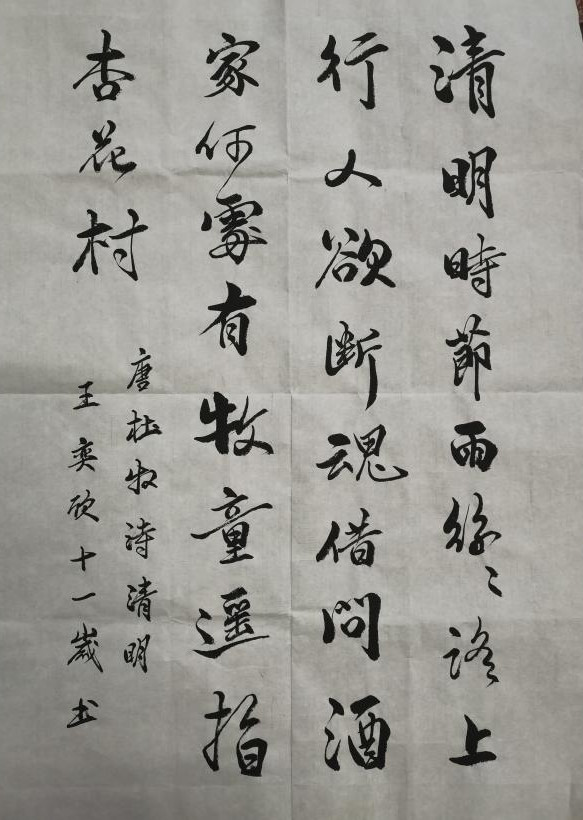 清明時節雨紛〻路上
行人欲断魂借問酒
家何處有牧童遥指
杏花村
唐杜牧诗清明
王奕欣十一歲书